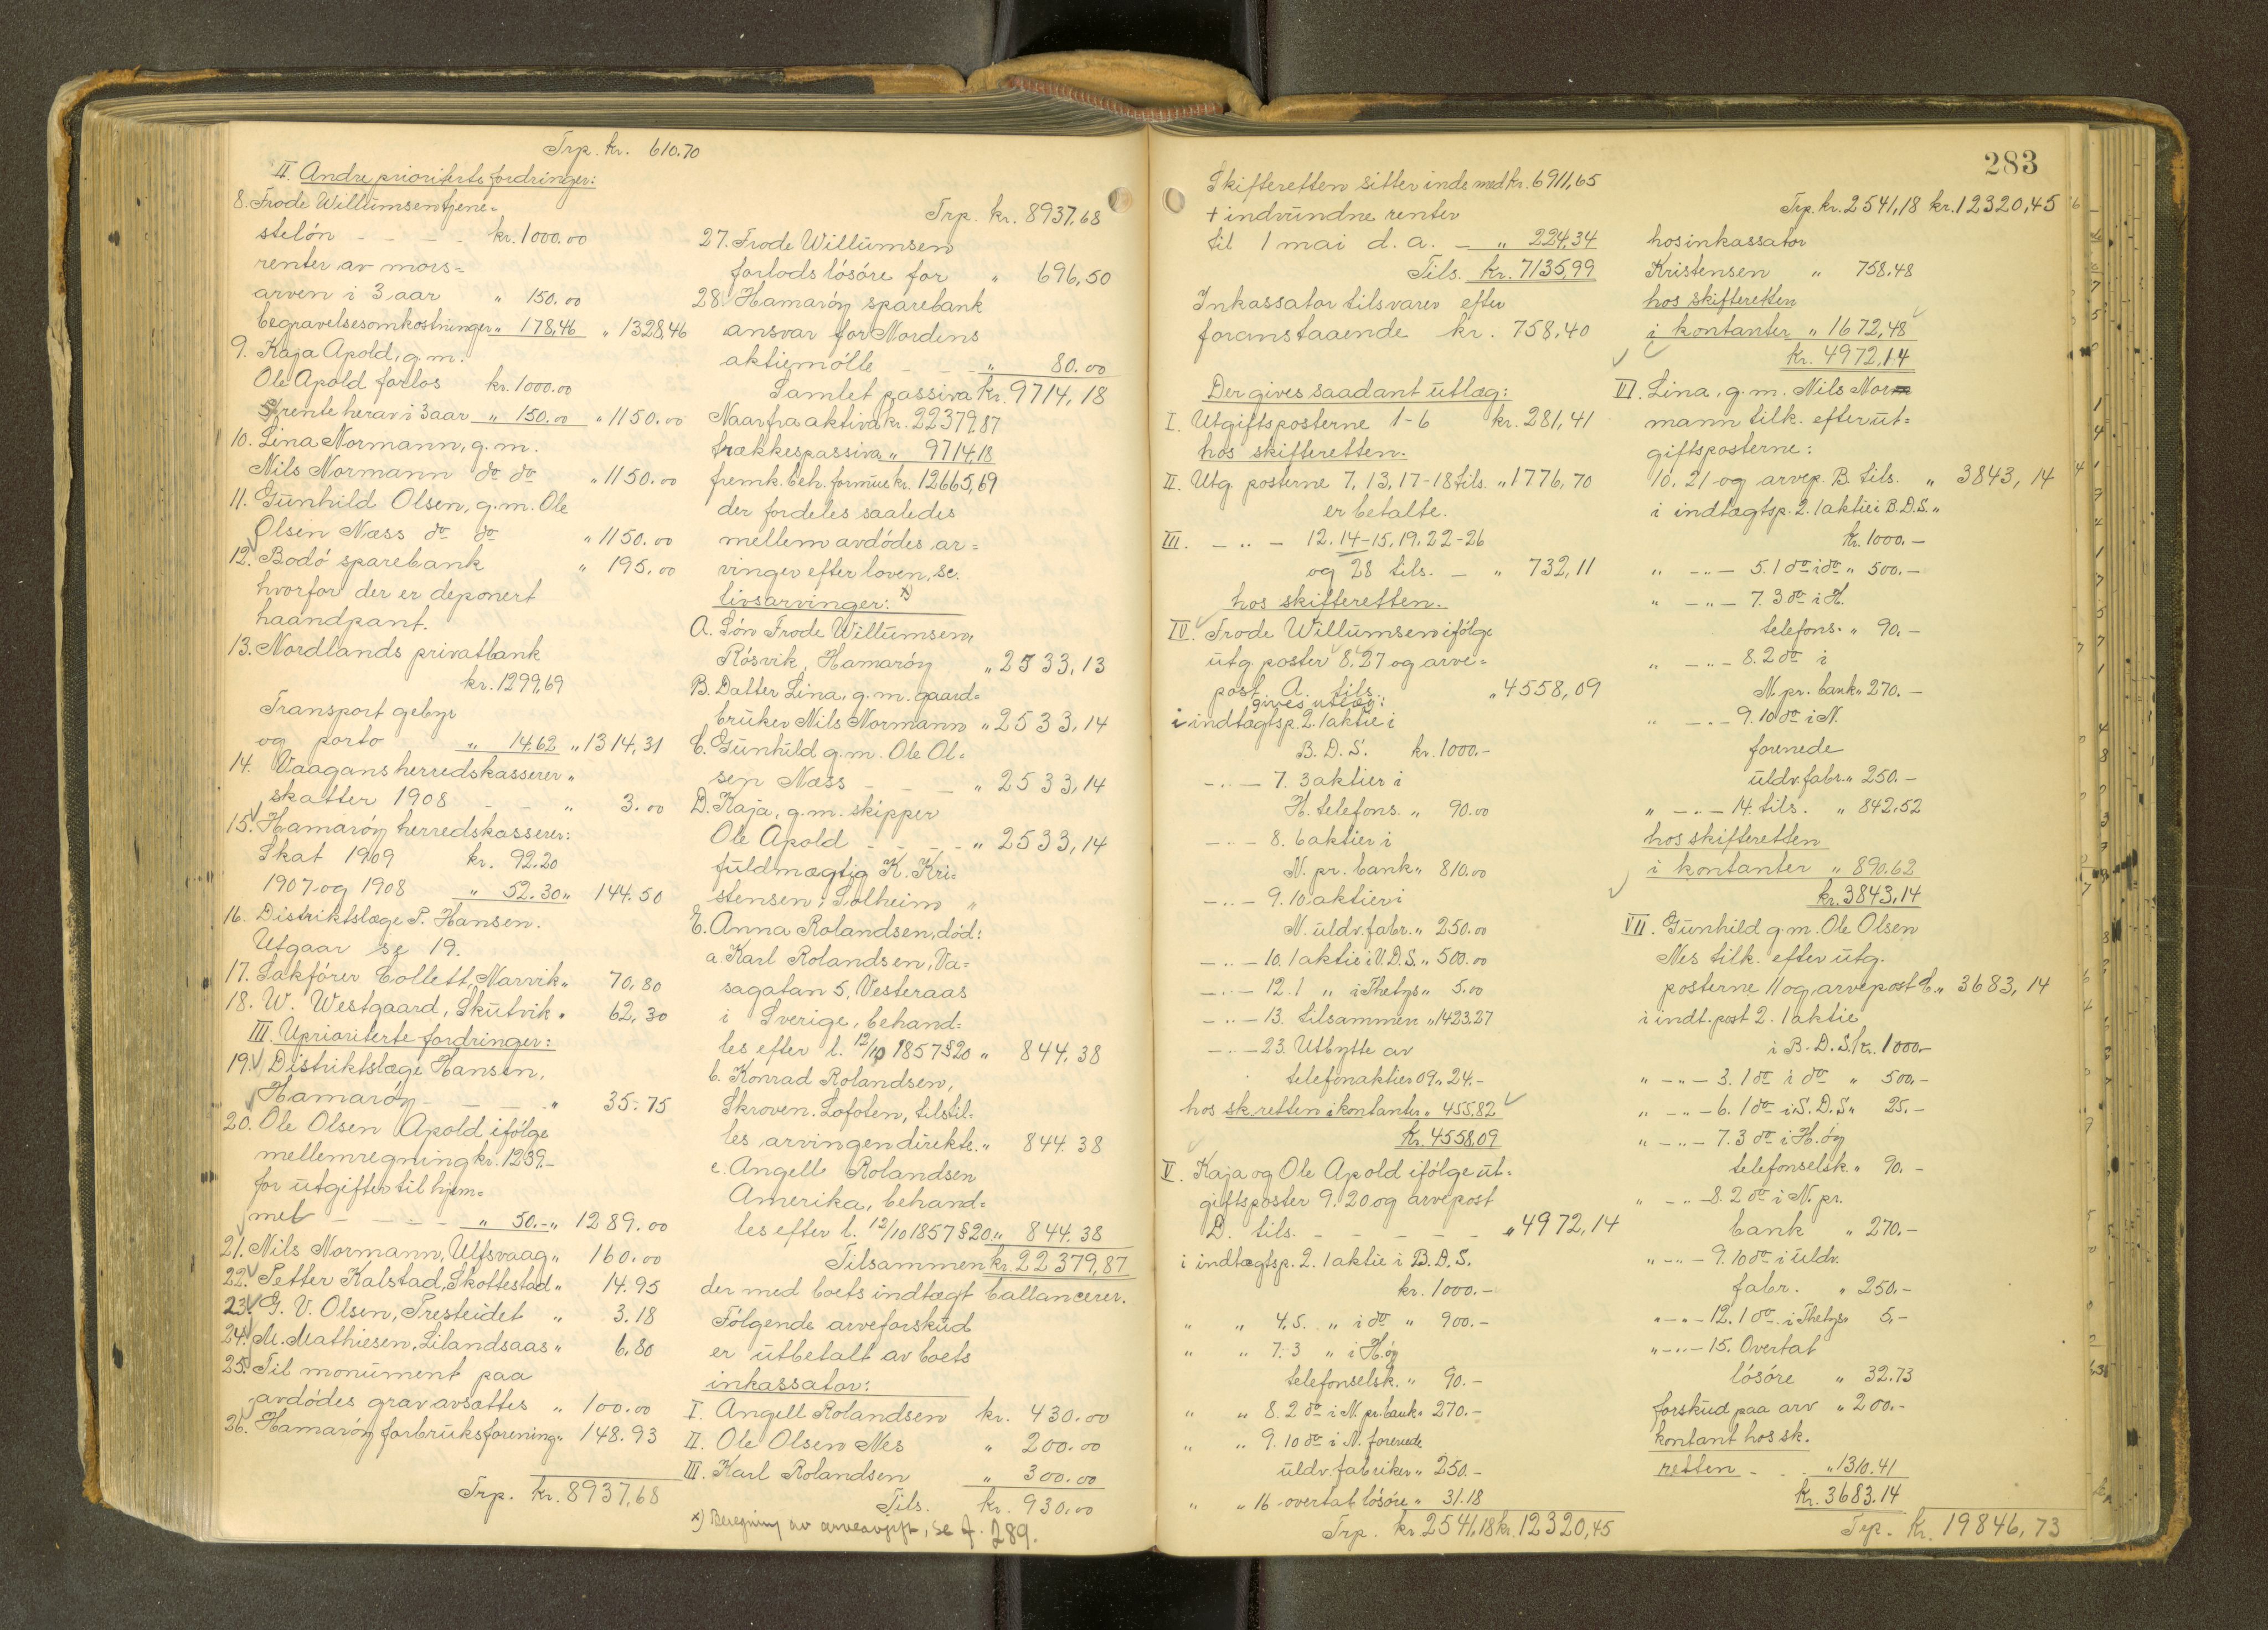 Trp. kr. 610.70
II. Andre prioriterte fordringer:
8. Frode Willumsen tjene=
steløn - - - - kr. 1000.00
renter av mors=
arven i 3 aar " 150.00
begravelsesomkostninger " 178,46 " 1328,46
9. Kaja Apold, g.m.
Ole Apold forlos kr. 1000.00
5% rente herav i 3 aar " 150.00 " 1150.00
10. Lina Normann, g.m.
Nils Normann do do " 1150.00
11. Gunhild Olsen, g.m. Ole
Olsen Næss do do " 1150.00
12. Bodø sparebank " 195.00
hvorfor der er deponert
haandpant.
13. Nordlands privatbank
kr. 1299,69
Transport gebyr
og porto " 14.62 " 1314,31
14. Vaagans herredskasserer "
skatter 1908 - - " 3.00
15. Hamarøy herredskasserer:
Skat 1909 kr. 92.20
1907 og 1908 " 52.30 " 144.50
16. Distriktslæge P. Hansen.
Utgaar se 19.
17. Sakfører Collett, Narvik " 70,80
18. W. Westgaard, Skutvik " 62,30
III. Uprioriterte fordringer:
19. Distriktslæge Hansen,
Hamarøy - - - - " 35.75
20. Ole Olsen Apold ifølge
mellemregning kr. 1239.-
for utgifter til hjem=
met - - - - " 50.- " 1289.00
21. Nils Normann, Ulfsvaag " 160.00
22. Petter Kalstad, Skottestad " 14.95
23. G. V. Olsen, Presteidet " 3.18
24. M. Mathiesen, Lilandsaas " 6,80
25. Til monument paa
avdødes grav avsættes " 100.00
26. Hamarøy forbruksforening " 148.93
Trp. kr. 8937,68
Trp. kr. 8937,68
27. Frode Willumsen
forlods løsøre for " 696,50
28. Hamarøy sparebank
ansvar for Nordens
aktiemølle - - - " 80.00
Samlet passiva kr. 9714,18
Naar fra aktiva kr. 22379,87
trækkes passiva " 9714,18
fremk. beh. formue kr. 12665,69
der fordeles saaledes
mellem avdødes ar=
vinger efter loven, se.
livsarvinger: x)
A. Søn Frode Willumsen,
Røsvik, Hamarøy " 2533,13
B. Datter Lina, g.m. gaard=
bruker Nils Normann " 2533,14
C. Gunhild g.m. Ole Ol=
sen Næss - - - " 2533,14
D. Kaja, g.m. skipper
Ole Apold - - - - " 2533,14
fuldmægtig K. Kri=
stensen, Solheim "
E. Anna Rolandsen, død:
a. Karl Rolandsen, Va=
sagatan 5, Vesteraas
i Sverige, behand=
les efter l. 12/10 1857 § 20 " 844,38
b. Konrad Rolandsen,
Skroven. Lofoten, tilstil=
les arvingen direkte. " 844.38
c. Angell Rolandsen
Amerika, behand=
les efter l. 12/10 1857 § 20 " 844.38
Tilsammen kr. 22379,87
der med boets indtægt ballancerer.
Følgende arveforskud
er utbetalt av boets
inkassator:
I. Angell Rolandsen kr. 430.00
II. Ole Olsen Nes " 200.00
III. Karl Rolandsen " 300.00
Tils. kr. 930.00
x) Beregning av arveavgift, se f. 289.
283
Skifteretten sitter inde med kr. 6911,65
+ indvundne renter
til 1 mai d. a. - " 224,34
Tils. kr. 7135,99
Inkassator tilsvarer efter
foranstaaende kr. 758,40
Der gives saadant utlæg:
I. Utgiftsposterne 1-6 kr. 281,41
hos skifteretten.
II. Utg. posterne 7, 13, 17-18 tils. " 1776,70
er betalte.
III. - " - 12. 14-15, 19. 22-26
og 28 tils. - " 732,11
hos skifteretten.
IV. Frode Willumsen ifølge
utg. poster 8. 27 og arve=
post A. tils. " 4558,09
gives utlæg:
i indtægtsp. 2. 1 aktie i
B. D. S. kr. 1000.-
- " - 7. 3 aktier i
H. telefons. " 90.00
- " - 8. 6 aktier i
N. pr. bank " 810.00
- " - 9. 10 aktier i
N. uldv. fabr. " 250.00
- " - 10. 1 aktie i V. D. S. " 500.00
- " - 12. 1 " i Thetys " 5.00
- " - 13. tilsammen " 1423,27
- " - 23. Utbytte av
telefonaktier 09 " 24.-
hos sk.retten i kontanter " 455,82
kr. 4558,09
V. Kaja og Ole Apold ifølge ut=
giftsposter 9. 20 og arvepost
D. tils. - - - - - " 4972,14
i indtægtsp. 2. 1 aktie i B. D. S.
kr. 1000.-
" " 4. 5. " i do " 900.-
" " 7. 3 " i H.øy
telefonselsk. " 90.-
" " 8. 2 do i N. pr. bank " 270.-
" " 9. 10 do i N. forenede
uldv. fabriker " 250.-
" " 16 overtat løsøre " 31.18
Trp. kr. 2541,18 kr. 12320,45
Trp. kr. 2541,18 kr. 12320,45
hos inkassator
Kristensen " 758.48
hos skifteretten
i kontanter " 1672,48
kr. 4972,14
VI. Lina, g.m. Nils Nor
mann tilk. efter ut=
giftsposterne:
10, 21 og arvep. B. tils. " 3843,14
i indtægtsp. 2. 1 aktie i B. D. S. "
kr. 1000.-
" - " - 5. 1 do i do " 500.-
" - " - 7. 3 do i H.
telefons. " 90.-
" - " - 8. 2 do i
N. pr. bank " 270.-
" - " - 9. 10 do i N.
forenede
uldv. fabr. " 250.-
" - " - 14. tils. " 842,52
hos skifteretten
i kontanter " 890.62
kr. 3843,14
VII. Gunhild g.m. Ole Olsen
Nes tilk. efter utg.
posterne 11 og arvepost C. " 3683,14
i indt. post 2. 1 aktie
i B. D. S. kr. 1000.-
" - " - 3. 1 do i do " 500.-
" - " - 6. 1 do i S. D. S. " 25.-
" - " - 7. 3 do i H.øy
telefonselsk. " 90.-
" - " - 8. 2 do i N. pr.
bank " 270.-
" - " - 9. 10 do i uldv.
fabr. " 250.-
" - " - 12. 1 do i Thetys " 5.-
" - " - 15. Overtat
løsøre " 32.73
forskud paa arv " 200.-
kontant hos sk.
retten - - " 1310.41
kr. 3683.14
Trp. kr. 19846,73